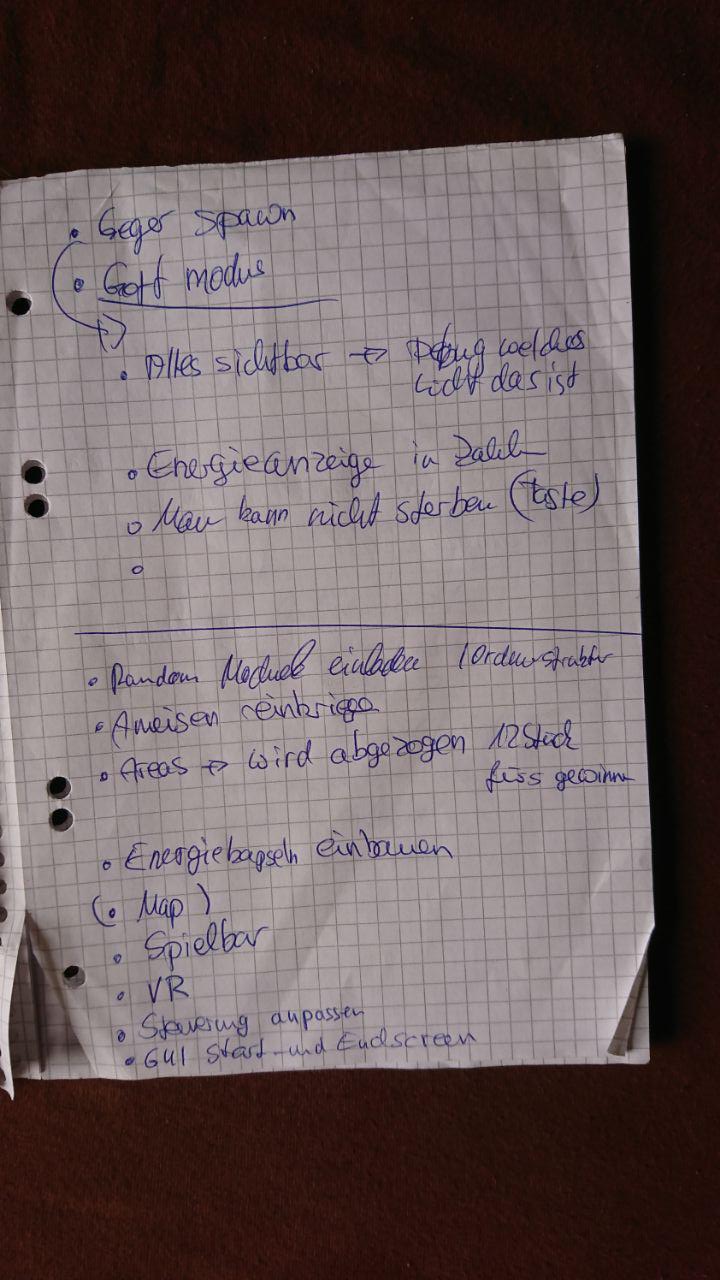 • Geger Spawn
• Gott modus
• Alles sichtbar → Debug welches
Licht das ist
• Energieanzeige in Zahlen
• Man kann nicht sterben (taste)
• Random Module einladen / Ordnerstruktur
• Ameisen reinkriegen
• Areas → wird abgezogen 12 Stück
fürs gewinnen
• Energiekapseln einbauen
(• Map )
• Spielbar
• VR
• Steuerung anpassen
• GUI Start- und Endscreen